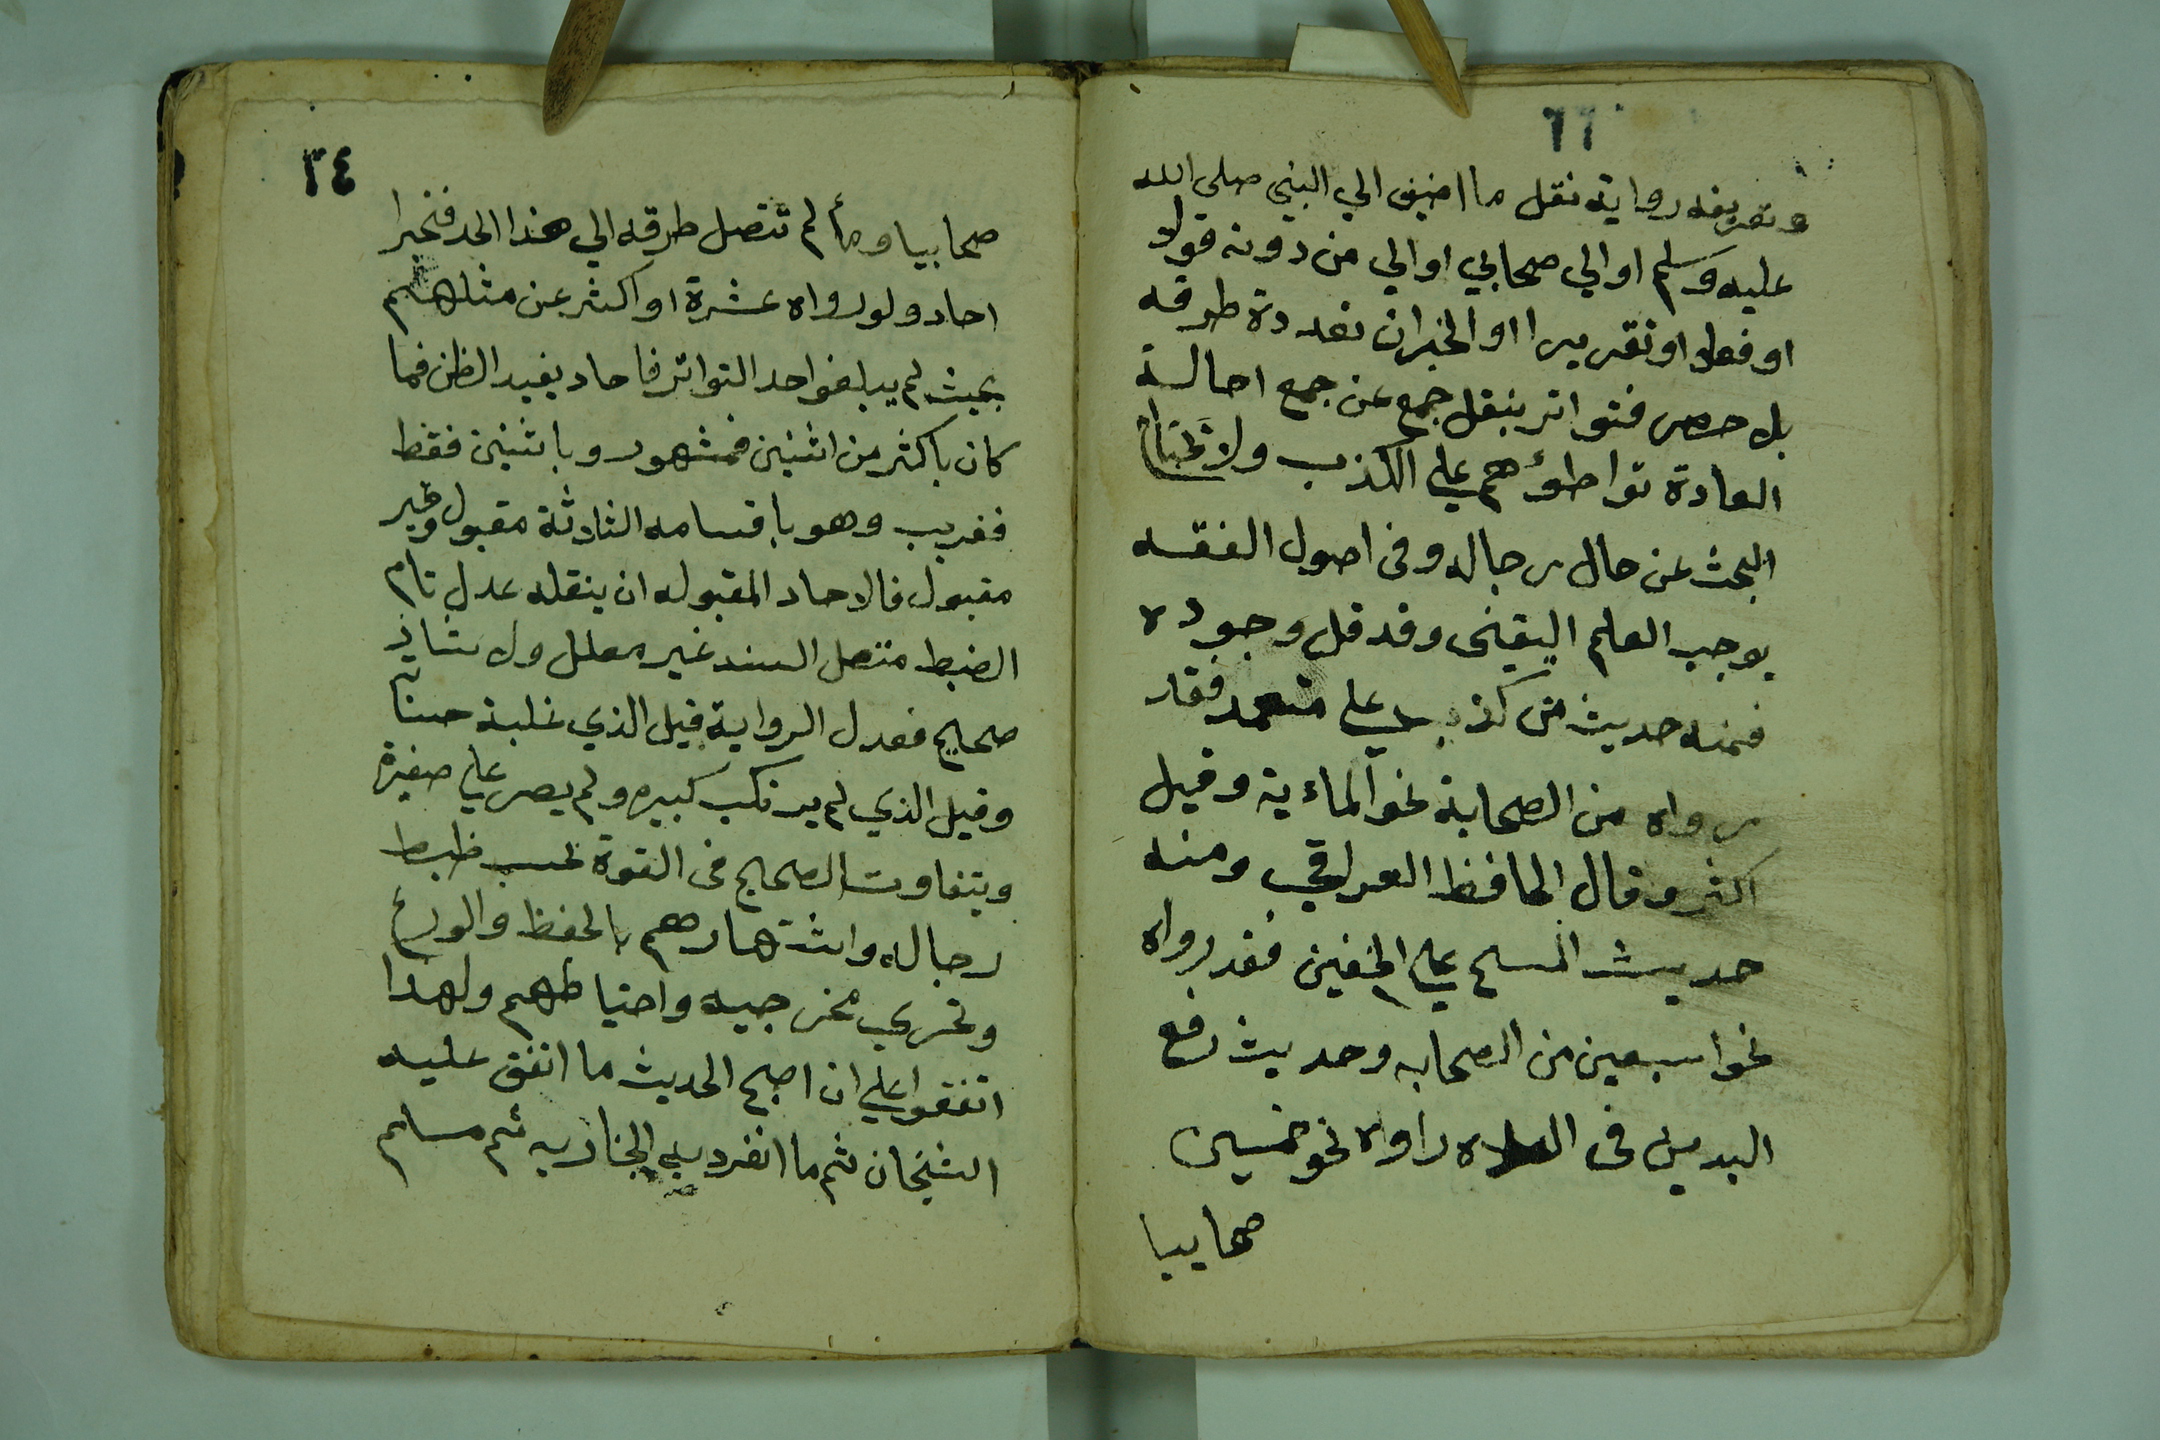 ٦٦
وتعريفه رواية نقل ما اضيف الي النبي صلى الله
عليه وسلم او الي صحابي او الي من دونه قولا
او فعلا او تقريرا والخبر ان تعددة طرقه
بلا حصر فتواتر بنقل جمع عن جمع احالة
العادة تواطؤهم علي الكذب ولا
البحث عن حال رجاله وفى اصول الفقه
يوجب العلم اليقنى وقد قل وجوده
فمنه حديث من كذب علي متعمد فقد
رواه من الصحابة نحو الماءية وقيل
اكثر وقال الحافظ العراقي ومنه
حديث المسح علي الخفين فقد رواه
نحوا سبعين من الصحابه وحديث رفع
اليدين فى الصلاه راواه نحو خمسين
صحابيا
٣٤
صحابيا وما لم تتصل طرقه الي هذا الحد فخبرا
احاد ولو رواه عشرة او اكثر عن مثلهم
بحيث لم يبلغوا حد التواتر فاحاد يفيد الظن فما
كان باكثر من اثنين فمشهور وباثنين فقط
فغريب وهو باقسامه الثلاثة مقبول وغير
مقبول فالاحاد المقبوله ان ينقله عدل تام
الضبط متصل السند غير معلل ولا شاذ
صحايح فعدل الرواية قيل الذي غلبة
وقيل الذي لم يرتكب كبيره ولم يصر علي صغيرة
ويتفاوت الصحايح فى القوة بحسب ظبط
رجاله واشتهارهم بالحفظ والورع
وتحري مخرجيه واحتياطهم ولهذا
اتفقوا علي ان اصح الحديث ما اتفق عليه
الشيخان ثم ما انفرد به البخاريه ثم مسلم